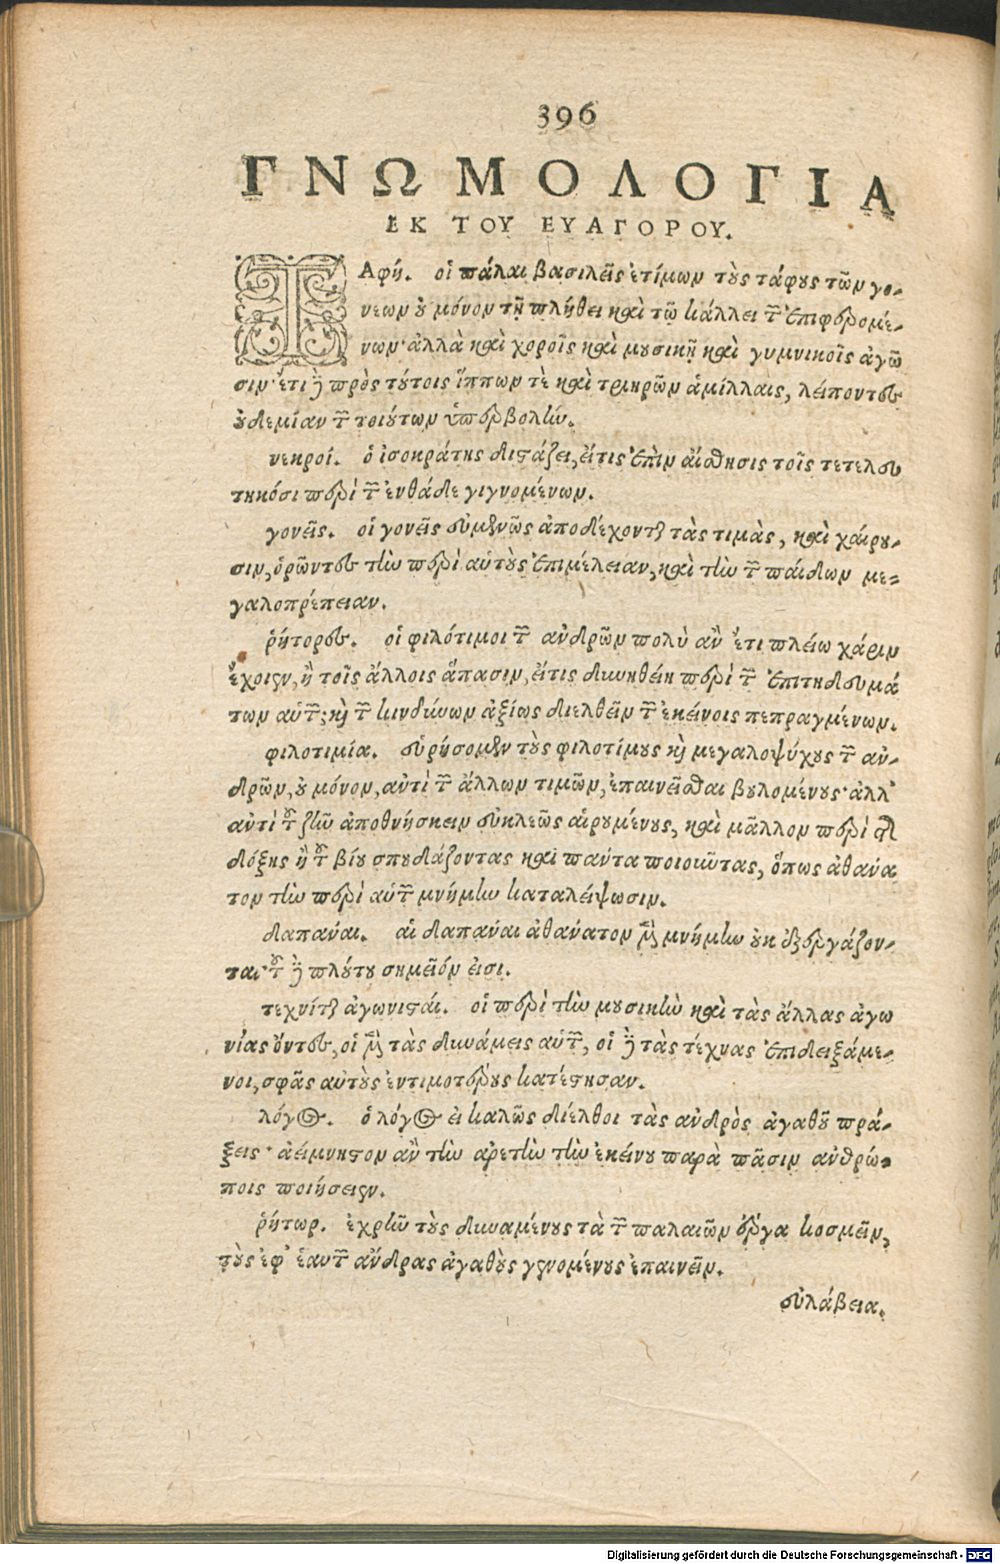 396
ΓΝΩΜΟΛΟΓΙΑ
ΕΚ ΤΟΥ ΕΥΑΓΟΡΟΥ.
ΤΑφή. οἱ πάλαι βασιλεῖς ἐτίμων τοὺς τάφους τῶν γο-
νέων οὐ μόνον τῷ πλήθει καὶ τῷ κάλλει τῶν ἐπιφερομέ-
νων· ἀλλὰ καὶ χοροῖς καὶ μουσικῇ καὶ γυμνικοῖς ἀγῶ
σιν· ἔτι δὲ πρὸς τούτοις ἵππων τὲ καὶ τριηρῶν ἁμίλλαις, λείποντες
οὐδεμίαν τῶν τοιούτων ὑπερβολήν.
νεκροί. ὁ ἰσοκράτης διστάζει, εἴτις ἐστὶν αἴσθησις τοῖς τετελευ
τηκόσι περὶ τῶν ἐνθάδε γιγνομένων.
γονεῖς. οἱ γονεῖς εὐμενῶς ἀποδέχονται τὰς τιμὰς, καὶ χαίρου-
σιν, ὁρῶντες τὴν περὶ αὑτοὺς ἐπιμέλειαν, καὶ τὴν τῶν παίδων με-
γαλοπρέπειαν.
ῥήτορες. οἱ φιλότιμοι τῶν ἀνδρῶν πολὺ ἂν ἔτι πλείω χάριν
ἔχοιεν, ἢ τοῖς ἄλλοις ἅπασιν, εἴτις δυνηθείη περὶ τῶν ἐπιτηδευμά
των αὐτῶν, καὶ τῶν κινδύνων ἀξίως διελθεῖν τῶν ἐκείνοις πεπραγμένων.
φιλοτιμία. εὑρήσομεν τοὺς φιλοτίμους καὶ μεγαλοψύχους τῶν ἀν-
δρῶν, οὐ μόνον, ἀντὶ τῶν ἄλλων τιμῶν, ἐπαινεῖσθαι βουλομένους· ἀλλ'
ἀντὶ τοῦ ζῆν ἀποθνήσκειν εὐκλεῶς αἱρουμένους, καὶ μᾶλλον περὶ τῆς
δόξης ἢ τοῦ βίου σπουδάζοντας καὶ πάντα ποιοῦντας, ὅπως ἀθάνα
τον τὴν περὶ αὑτῶν μνήμην καταλείψωσιν.
δαπάναι. αἱ δαπάναι ἀθάνατον μὲν μνήμην οὐκ ἐξεργάζον-
ται· τοῦ δὲ πλούτου σημεῖόν εἰσι.
τεχνῖται ἀγωνισταί. οἱ περὶ τὴν μουσικὴν καὶ τὰς ἄλλας ἀγω
νίας ὄντες, οἱ μὲν τὰς δυνάμεις αὐτῶν, οἱ δὲ τὰς τέχνας ἐπιδειξάμε-
νοι, σφᾶς αὐτοὺς ἐντιμοτέρους κατέστησαν.
λόγος. ὁ λόγος εἰ καλῶς διέλθοι τὰς ἀνδρὸς ἀγαθοῦ πρά-
ξεις· ἀείμνηστον ἂν τὴν ἀρετὴν τὴν ἐκείνου παρὰ πᾶσιν ἀνθρώ-
ποις ποιήσειεν.
ῥήτωρ. ἐχρῆν τοὺς δυναμένους τὰ τῶν παλαιῶν ἔργα κοσμεῖν,
τοὺς ἐφ' ἑαυτῶν ἄνδρας ἀγαθοὺς γενομένους ἐπαινεῖν.
εὐλάβεια.
Digitalisierung gefördert durch die Deutsche Forschungsgemeinschaft - DFG